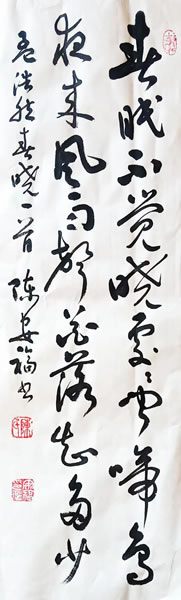 春眠不觉晓处处闻啼鸟
夜来风雨声花落知多少
孟浩然春晓一首 陈安福书